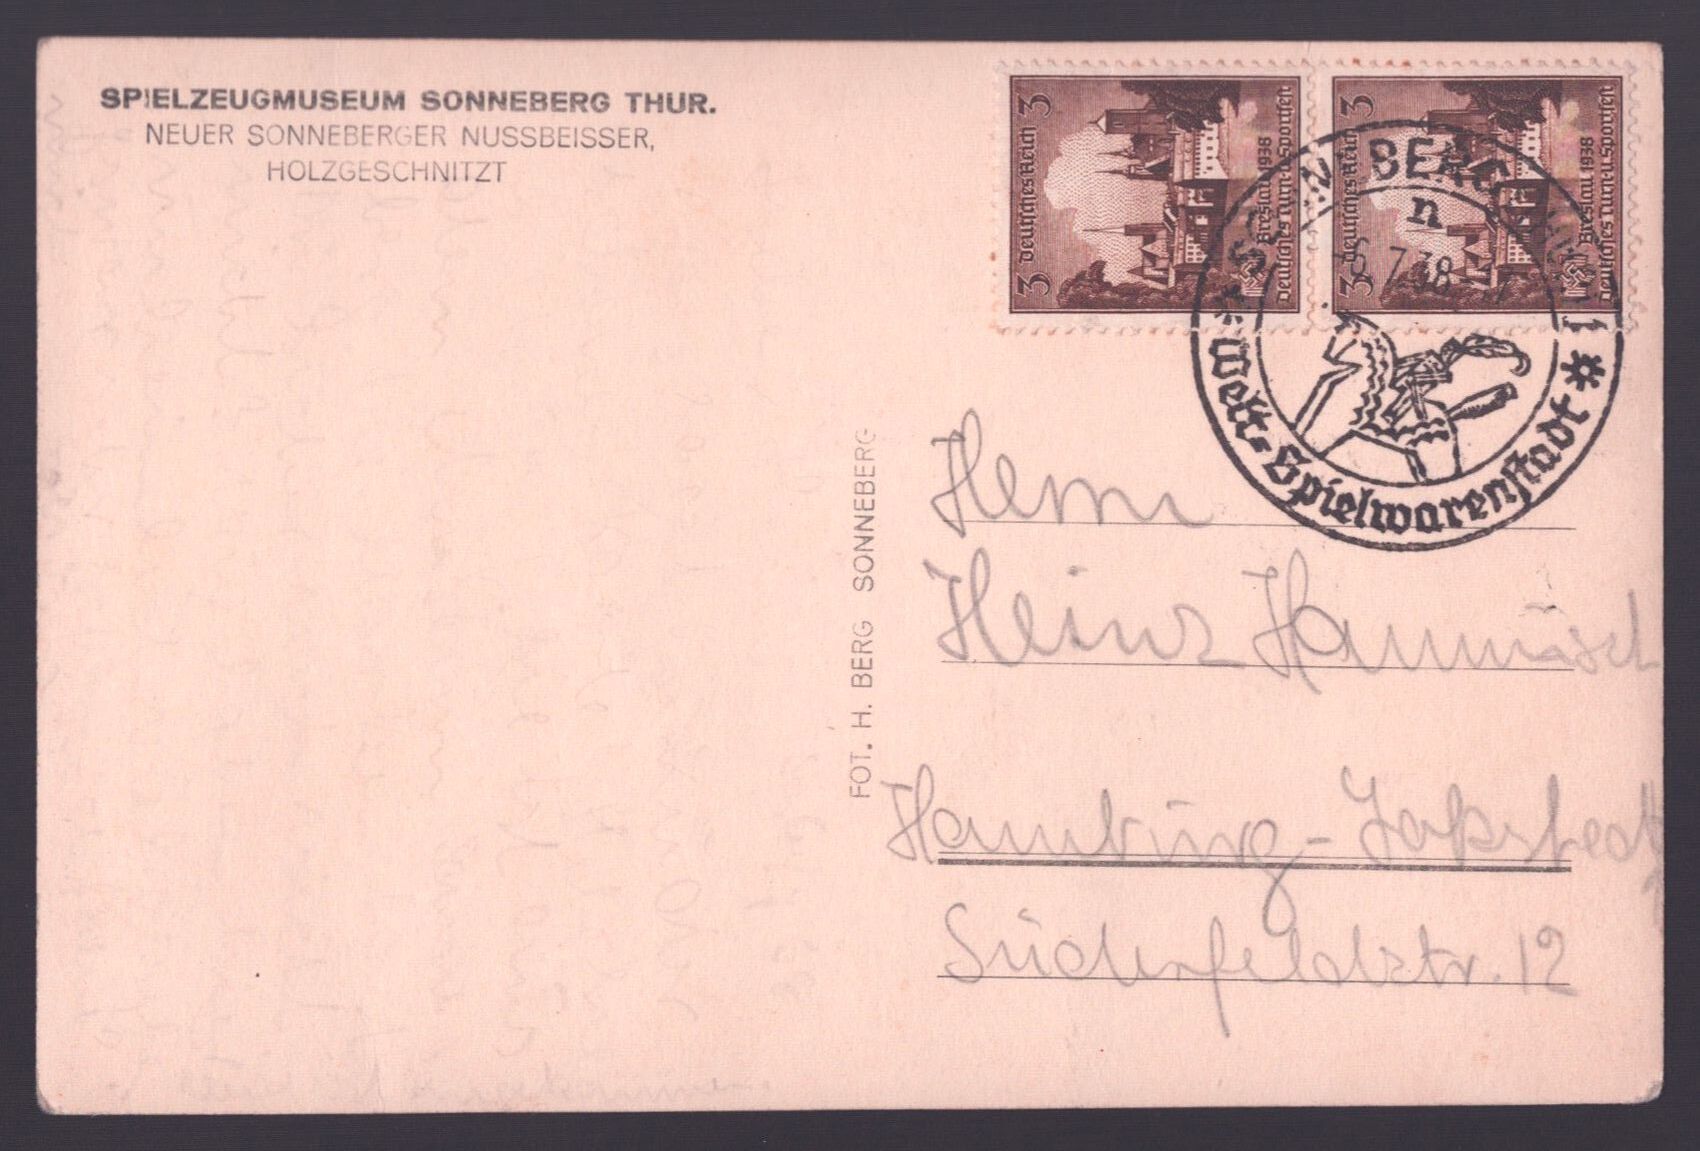 SPIELZEUGMUSEUM SONNEBERG THUR.
NEUER SONNEBERGER NUSSBEISSER,
HOLZGESCHNITZT
FOT. H. BERG SONNEBERG
3 Deutsches Reich 3
Breslau 1938
Deutsches Turn-u. Sportfest
3 Deutsches Reich 3
Breslau 1938
Deutsches Turn-u. Sportfest
SONNEBERG
n
7.38
* Welt-Spielwarenstadt *
Herrn
Heinz Hannisch
Hamburg-
Süderfeldstr. 12